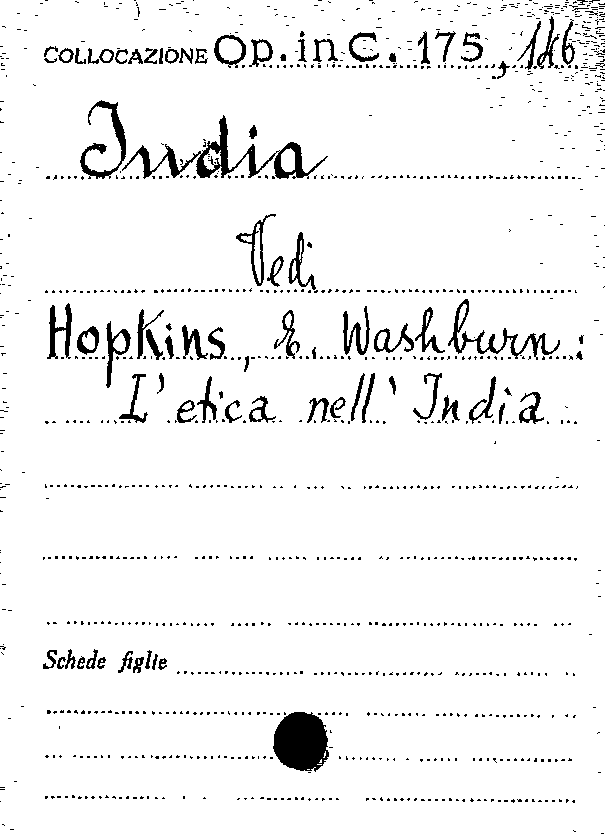 COLLOCAZIONE Op. in C. 175, 146
India
Vedi
Hopkins, E. Washburn:
L'etica nell'India
Schede figlie